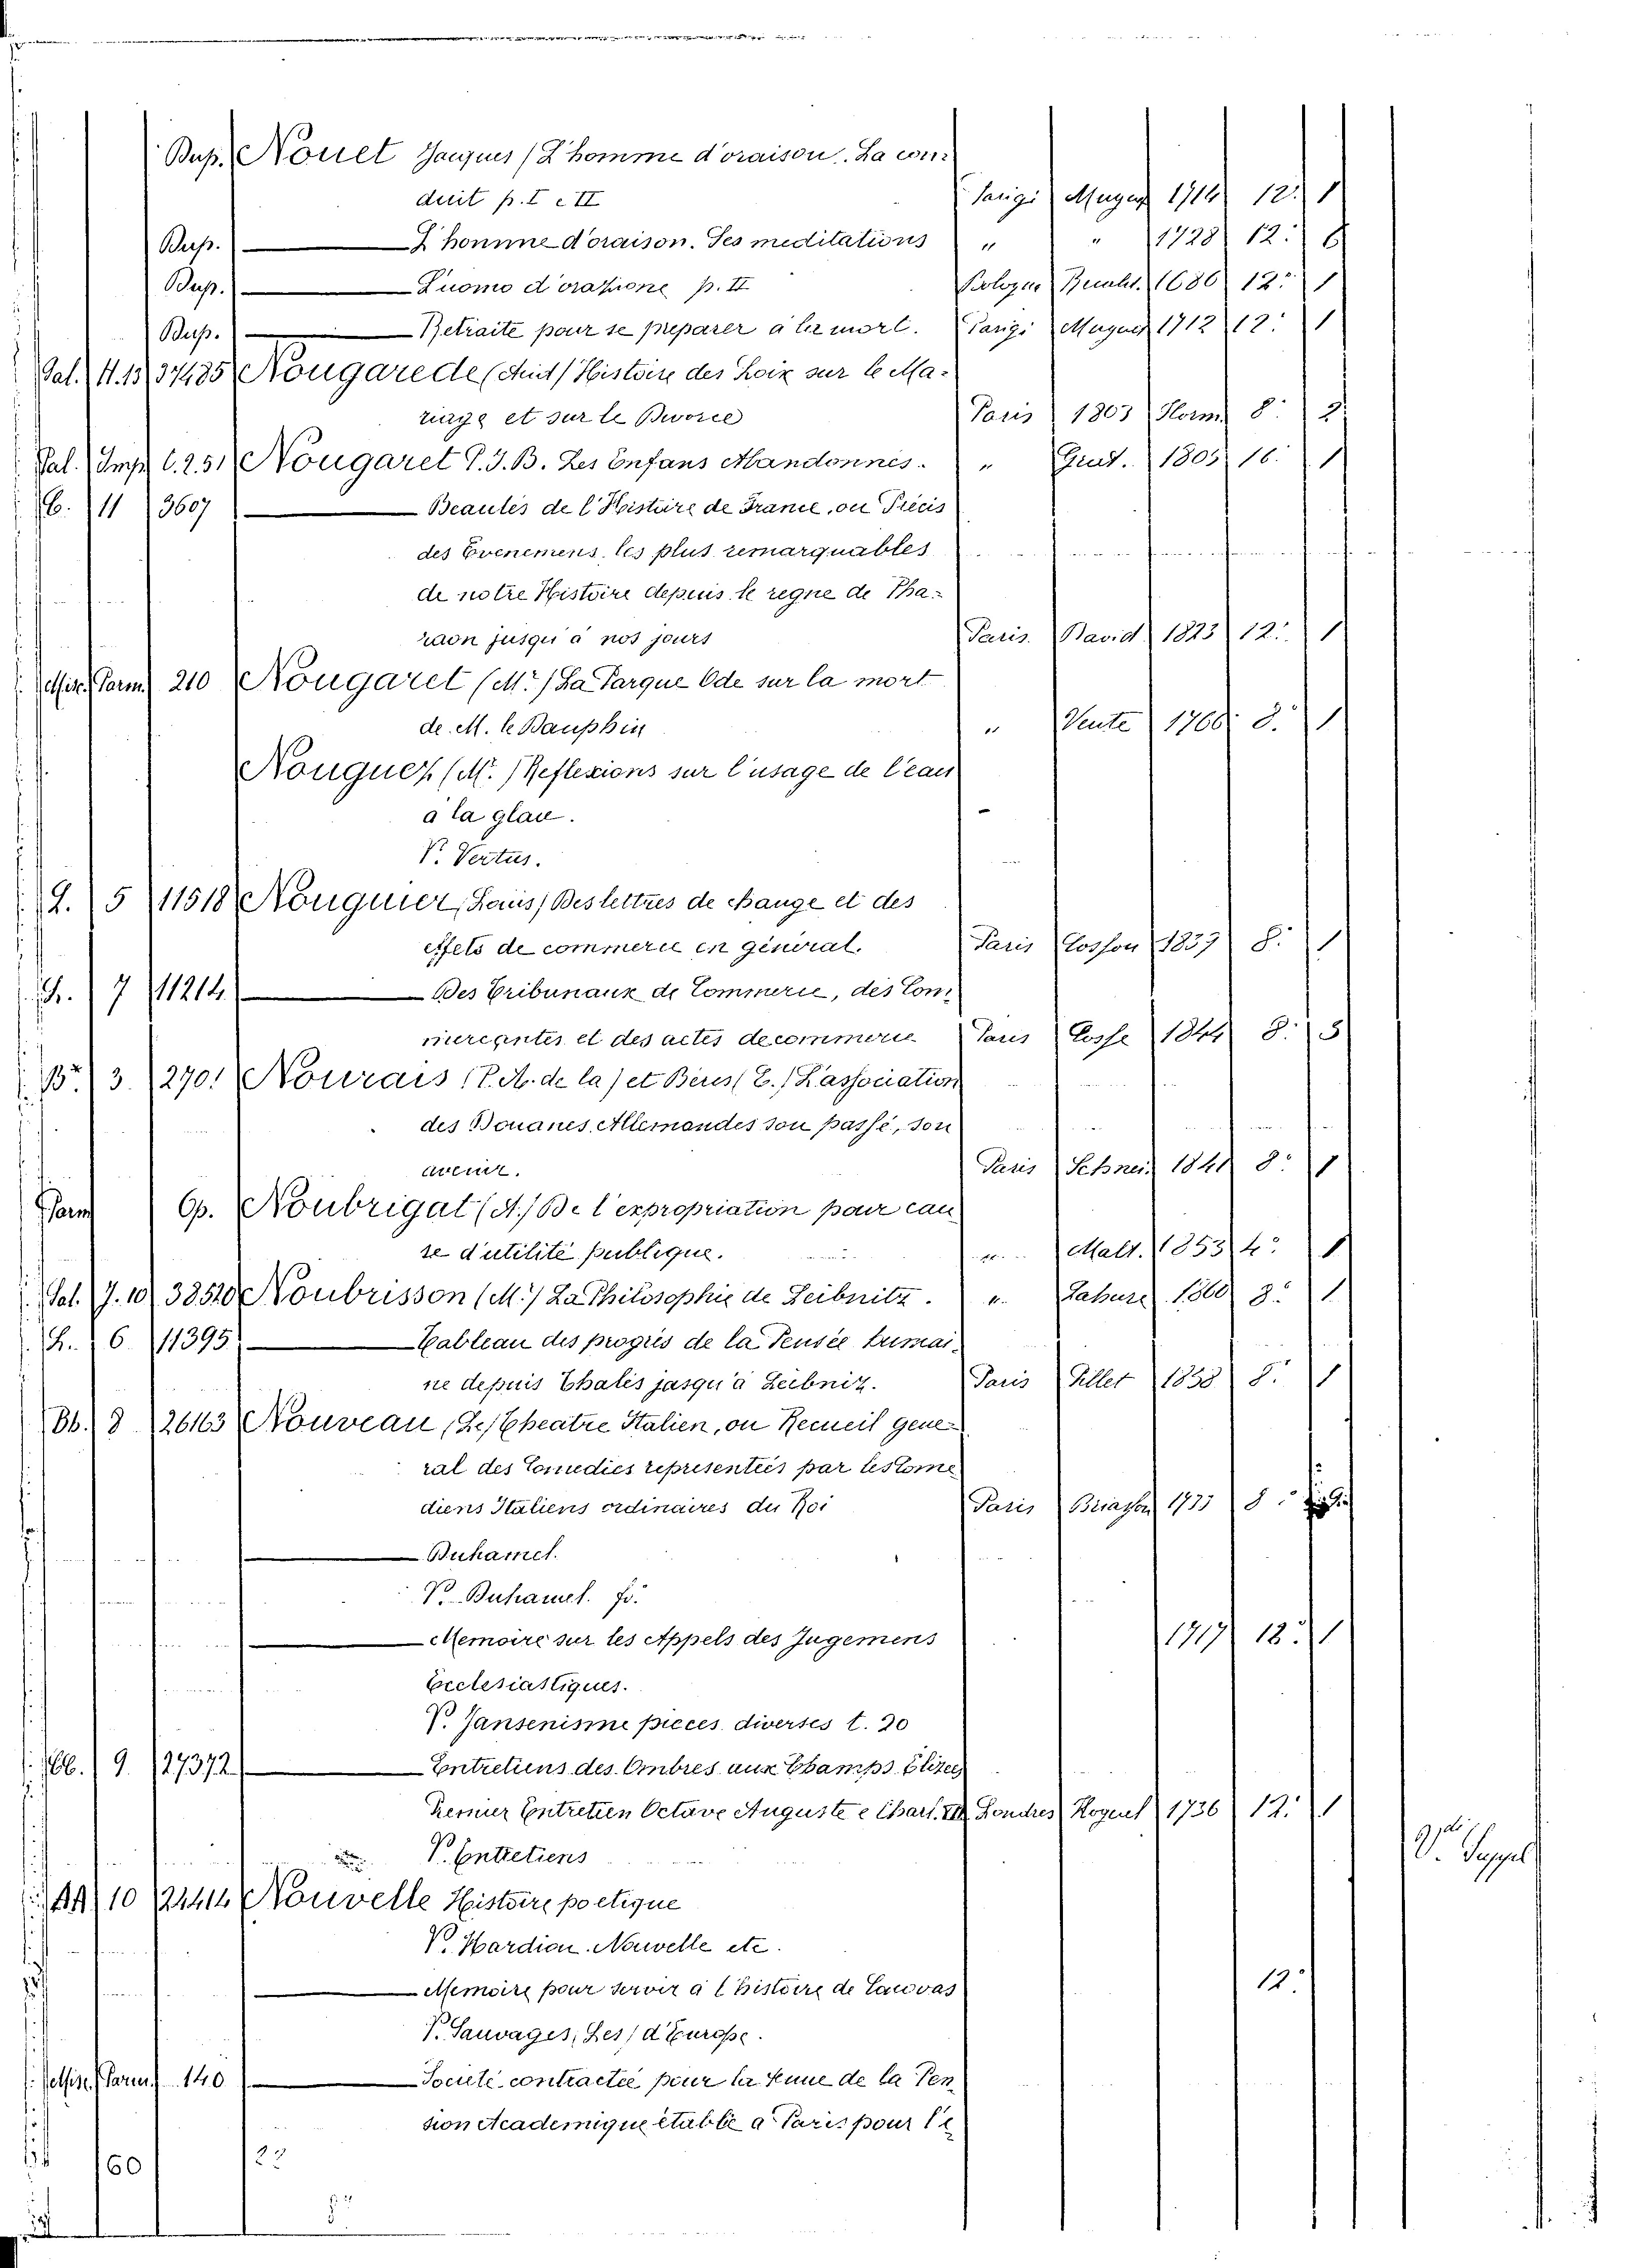 Dup. Nouet Jacques / L'homme d'oraison. La con-
duit p. I e II Parigi Muguet 1714 12.° 1
Dup. L'homme d'oraison. Ses meditations " " 1728 12.° 6
Dup. L'uomo d'orazione p. II Bologna 1686 12.° 1
Dup. Retraite pour se preparer a la mort. Parigi Muguet 1712 12.° 1
Pal. H. 13 37485 Nougarede (Aut) Histoire des Loix sur le Ma-
riage et sur le Divorce Paris 1803 Norm. 8.° 2
Pal. Imp. 6. 251 Nougaret P. J. B. Les Enfans Abandonnés. " 1805 16. 1
C. 11 3607 Beautés de l'Histoire de France, ou Précis
des Evenemens les plus remarquables
de notre Histoire depuis le regne de Pha-
raon jusqu'à nos jours Paris. David 1823 12.° 1
Misc. Parm. 210 Nougaret (M.r) La Parque Ode sur la mort
de M. le Dauphin " Vente 1766 8.° 1
Nouguez (M.) Reflexions sur l'usage de l'eau
à la glace.
V. Vertus.
L. 5 11518 Nouguier, Louis) Des lettres de change et des
effets de commerce en général. Paris Cosson 1837 8.° 1
7 11214 Des Tribunaux de Commerce, des Com-
merçantes et des actes de commerce Paris Cosse 1844 8.° 3
B.° 3. 270. Nourais (P. A. de la) et Bères (E.) L'association
des Douanes Allemandes son passé, son
avenir. Paris Schneid. 1841 8.° 1
Parm Op. Noubrigat (A.) De l'expropriation pour cau
se d'utilité publique. Malt. 1853 4.° 1
Pal. J. 10 38520 Noubrisson (M.r) La Philosophie de Leibnitz. " Lahure 1860 8.° 1
6. 11395 Tableau des progrès de la Pensée humai-
ne depuis Thalés jusqu'à Leibniz. Paris 1858 8.° 1
Bb. 8 26163 Nouveau (Le) Theatre Italien, ou Recueil gene-
ral des Comedies representées par les Come
diens Italiens ordinaires du Roi Paris Briasson 1733 8.°
Duhamel.
V. Duhamel. fr.
Memoire sur les Appels des Jugemens 1717 12.° 1
Ecclesiastiques.
V. Jansenisme pieces diverses t. 20
9. 27372 Entretiens des Ombres aux Champs Elizees
Premier Entretien Octave Auguste e Charl. XII Londres 1736 12.° 1
V. Entretiens
AA 10 22414 Nouvelle Histoire poetique
V. Hardion. Nouvelle etc.
Memoire pour servir à l'histoire de Cauvas 12.°
V. Sauvages, Les) d'Europe.
Misc. Parm. 140 Societé contractée pour la tenue de la Pen
sion Academique établie a Paris pour l'e
60 22
V. Suppl